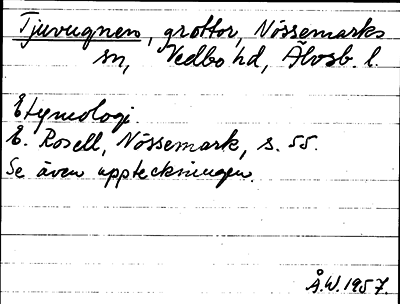 Tjuvugnen, grottor, Nössemarks
sn, Vedbo hd, Älvsb. l.
Etymologi.
E. Rosell, Nössemark, s. 55.
Se även uppteckningen.
Å.W. 1957.